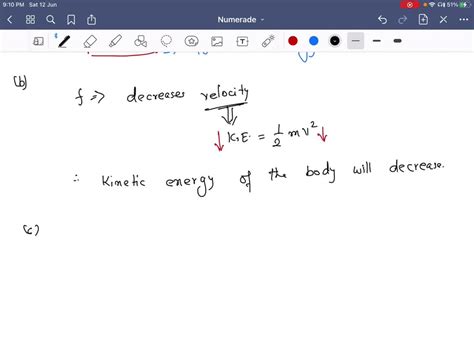 9:10 PM Sat 12 Jun
51%
Numerade
(b)
f => decreases velocity
↓ K.E. = 1/2 mv² ↓
∴ Kinetic energy of the body will decrease.
(c)